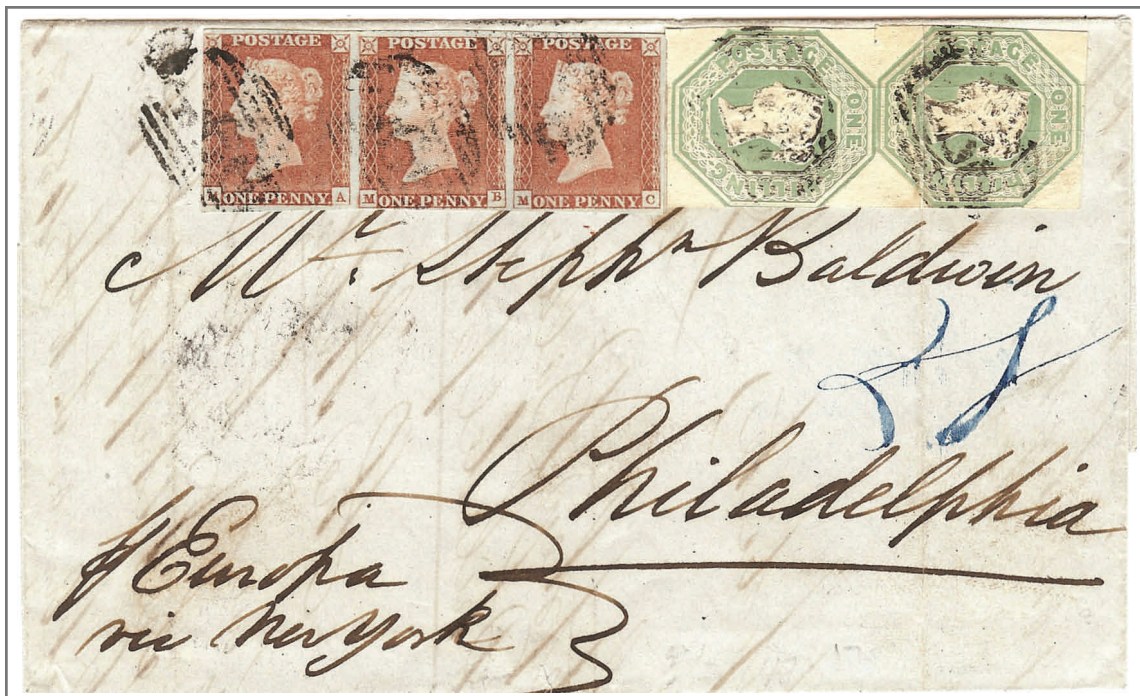 POSTAGE POSTAGE POSTAGE
A M B M C
ONE PENNY ONE PENNY ONE PENNY
POSTAGE ONE SHILLING POSTAGE ONE SHILLING
Mr. Stephn Baldwin
Philadelphia
p Europa
via New York